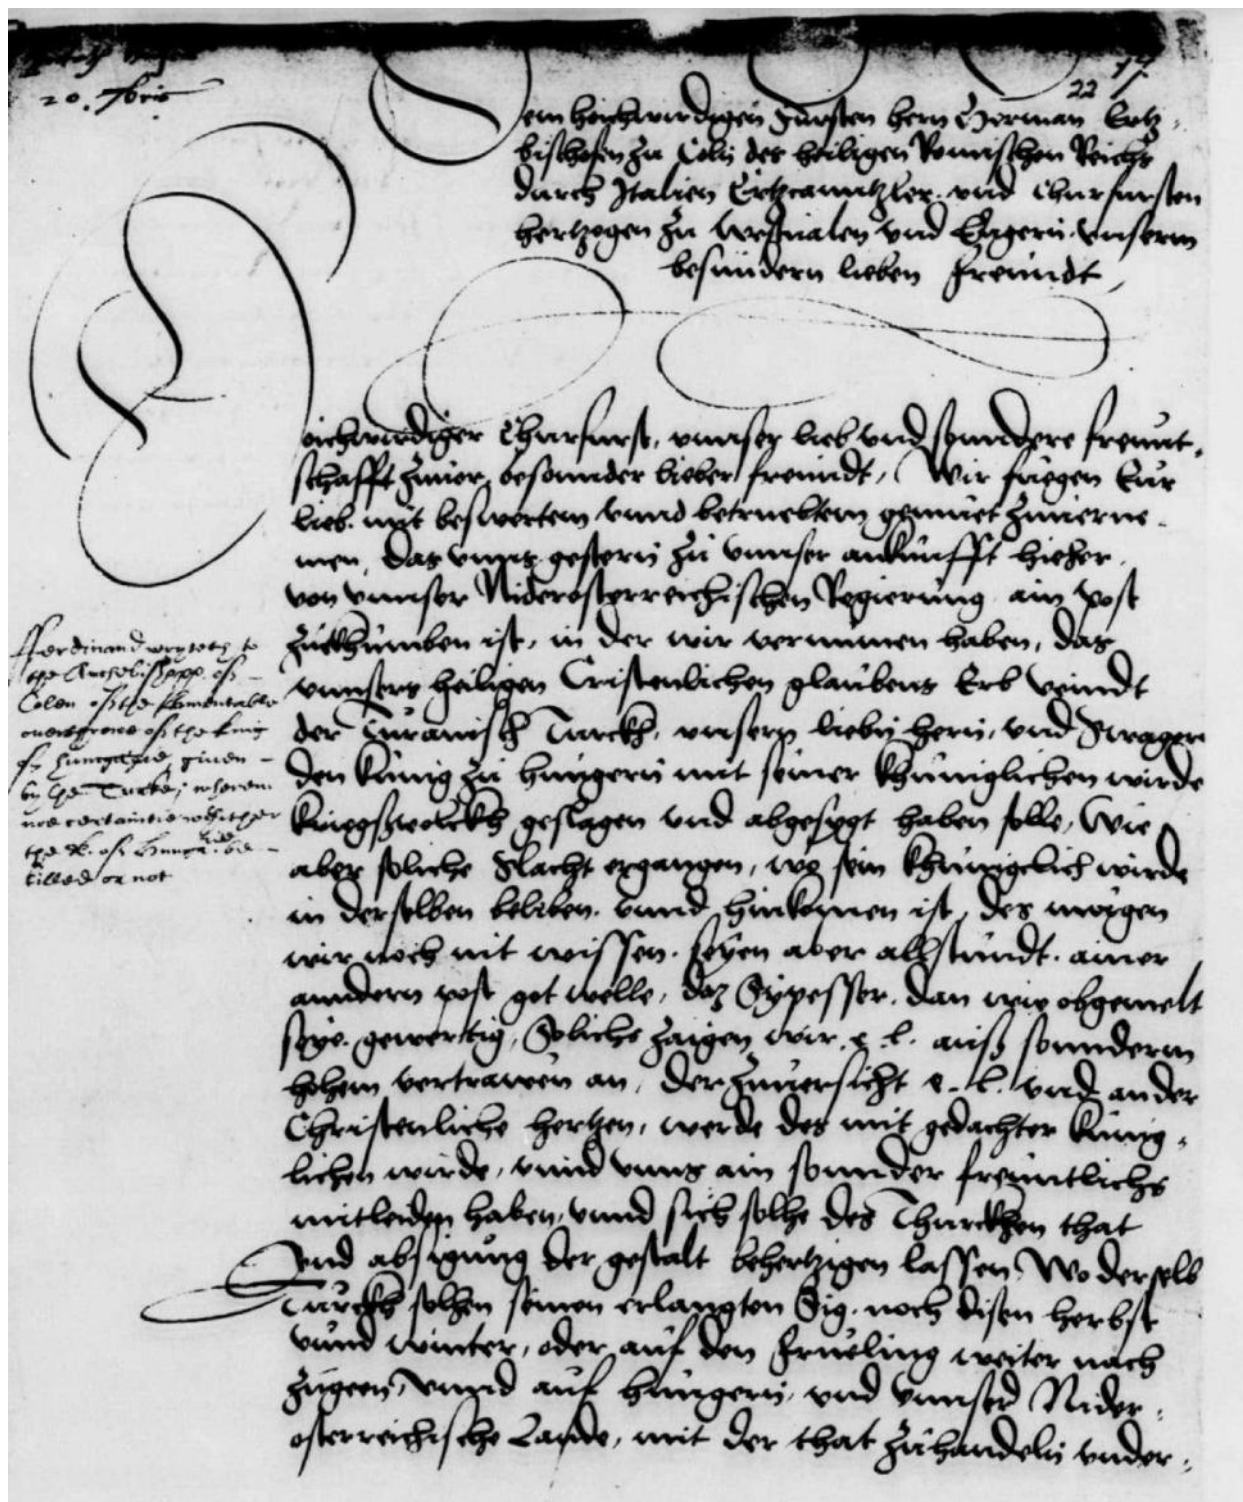 20. 7bris
22 17
Dem hochwirdigen Fursten hern Herman Ertz-
bischofen zu Coln des heiligen Romischen Reichs
durch Italien Ertzcanntzler. und Churfursten
hertzogen zu Westualen vnd Engern. vnserm
besundern lieben Freundt,
Hochwirdiger Churfurst, vnnser lieb vnd sondere freunt-
schafft zuuor, besonnder lieber freundt, Wir fuegen Eur
lieb. mit beswertem vnnd betruebtem gemuet zuuerne-
men, das vnns gestern zu vnnser ankunfft hieher
von vnnser Niderosterreichischen Regierung ain post
zuekhumben ist, in der wir vernummen haben, das
vnnsers heiligen Cristenlichen glaubens Erb veindt
der Turckh, vnsern lieben hern, vnd Swager
den kunig zu hungern mit seiner khuniglichen wirde
kriegssvolckh geslagen vnd abgesygt haben solle, Wie
aber soliche Slacht ergangen, wo sein khuniglich wirde
in derselben beliben. vnnd hinkomen ist, des mogen
wir noch nit wissen. seyen aber all stundt. ainer
anndern post got welle, daz Sy pesser. dan wie obgemelt
seye. gewertig, Soliche zaigen wir. e. l. auss sonnderm
hohem vertrawen an, der zuuersicht e. l. vnd ander
Christenliche hertzen, werde des mit gedachter kunig-
lichen wirde, vnnd vnns ain sonnder freuntlichs
mitleiden haben, vnnd sich solhe des Thurckhen that
vnd absigung der gestalt behertzigen lassen, Wo derselb
Turckh solhen seinen erlangten Sig. noch disen herbst
vnnd winter, oder auf den Frueling weiter nach
zugeen, vnnd auf hungern, vnd vnnser Nider-
osterreichische Lannde, mit der that zuhandeln vnder-
Ferdinand wryteth to
the Archbishopp of
Colen of the lamentable
ouerthrowe of the king
of Hungarye, giuen
by the Turke, wherein
noe certaintie whither
the K. of Hunga: be
killed or not